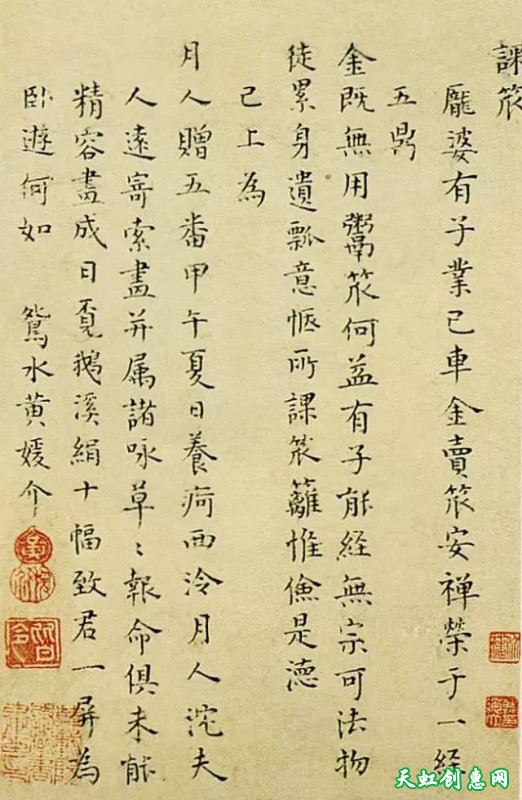 課笊
龐婆有子業已車金賣笊安禪榮于一經
五鼎
金既無用鬻笊何益有子能經無宗可法物
徒累身遺瓢意惬所課笊籬惟儉是德
已上為
月人贈五畨甲午夏日養疴西泠月人沱夫
人遠寄索畫并属諸咏草〻報命俱未能
精容畫成日覔鵝溪絹十幅致君一屏為
卧遊何如 鴛水黄媛介
天虹创惠网